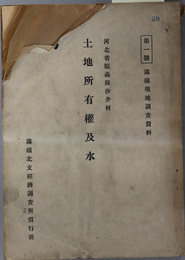 第一號
滿鐵現地調查資料
河北省順義縣沙井村
土地所有權及水
滿鐵北支經濟調查所慣行班